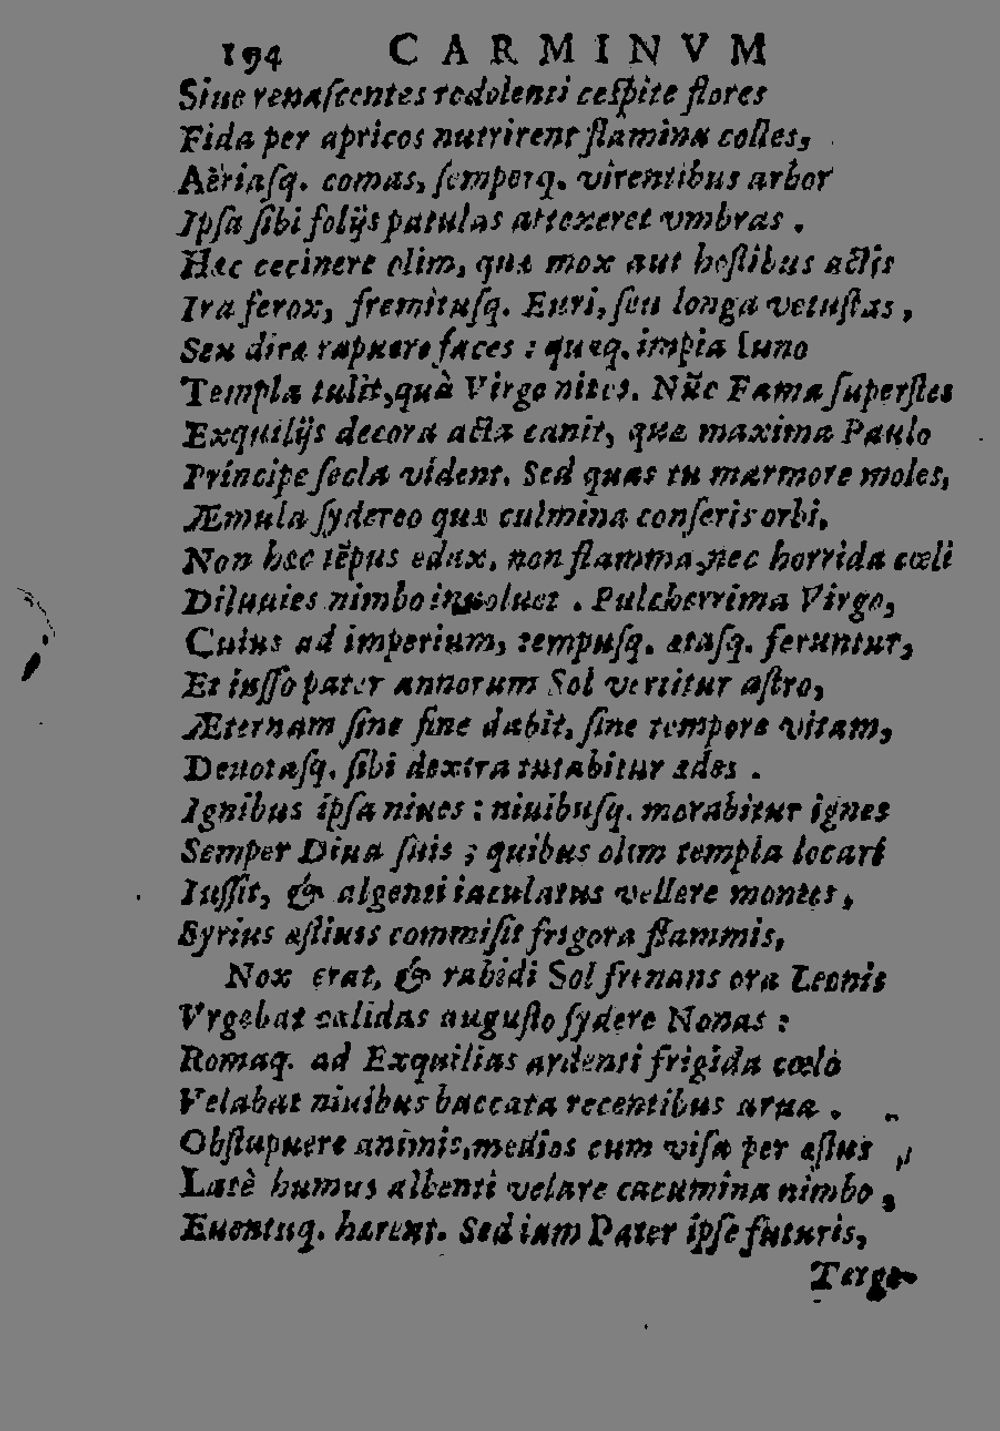 194 CARMINVM
Siue renaſcentes redolenti ceſpite flores
Fida per apricos nutrirent ſtamina colles,
Aëriaſq. comas, ſemperq. virentibus arbor
Ipſa ſibi folijs patulas attexeret vmbras .
Hæc cecinere olim, quæ mox aut hoſtibus actis
Ira ferox, fremituſq. Euri, ſeu longa vetuſtas ,
Seu diræ rapuere faces : quæq. impia Iuno
Templa tulit, quà Virgo nites. Nũc Fama ſuperſtes
Exquilijs decora acta canit, quæ maxima Paulo
Principe ſecla vident. Sed quas tu marmore moles,
Æmula ſydereo quæ culmina conſeris orbi,
Non hæc tẽpus edax, non flamma, nec horrida cœli
Diluuies nimbo inuoluet . Pulcherrima Virgo,
Cuius ad imperium, tempuſq. ætaſq. feruntur,
Et iuſſo pater annorum Sol vertitur aſtro,
Æternam ſine fine dabit, ſine tempore vitam,
Deuotaſq. ſibi dextra tutabitur ædes .
Ignibus ipſa niues : niuibuſq. morabitur ignes
Semper Diua ſuis ; quibus olim templa locari
Iuſſit, & algenti iaculatus vellere montes ,
Syrius æſtiuis commiſit frigora flammis,
Nox erat, & rabidi Sol frenans ora Leonis
Vrgebat calidas auguſto ſydere Nonas :
Romaq. ad Exquilias ardenti frigida cœlo
Velabat niuibus baccata recentibus arua .
Obſtupuere animis, medios cum viſa per æſtus
Latè humus albenti velare cacumina nimbo ,
Euentuq. hærent. Sed iam Pater ipſe futuris,
Terge-